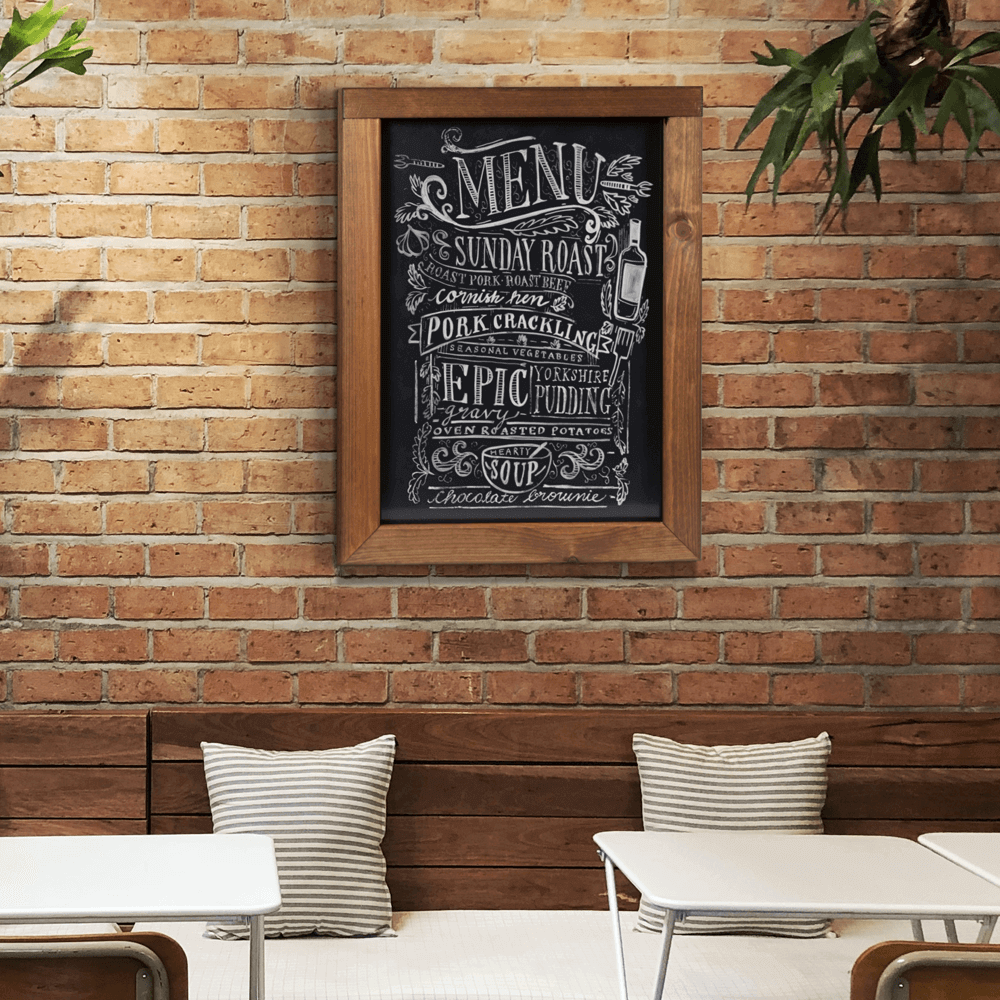 MENU
SUNDAY ROAST
ROAST PORK · ROAST BEEF
cornish hen
PORK CRACKLING
SEASONAL VEGETABLES
EPIC
gravy
YORKSHIRE
PUDDING
OVEN ROASTED POTATOES
HEARTY
SOUP
chocolate brownie